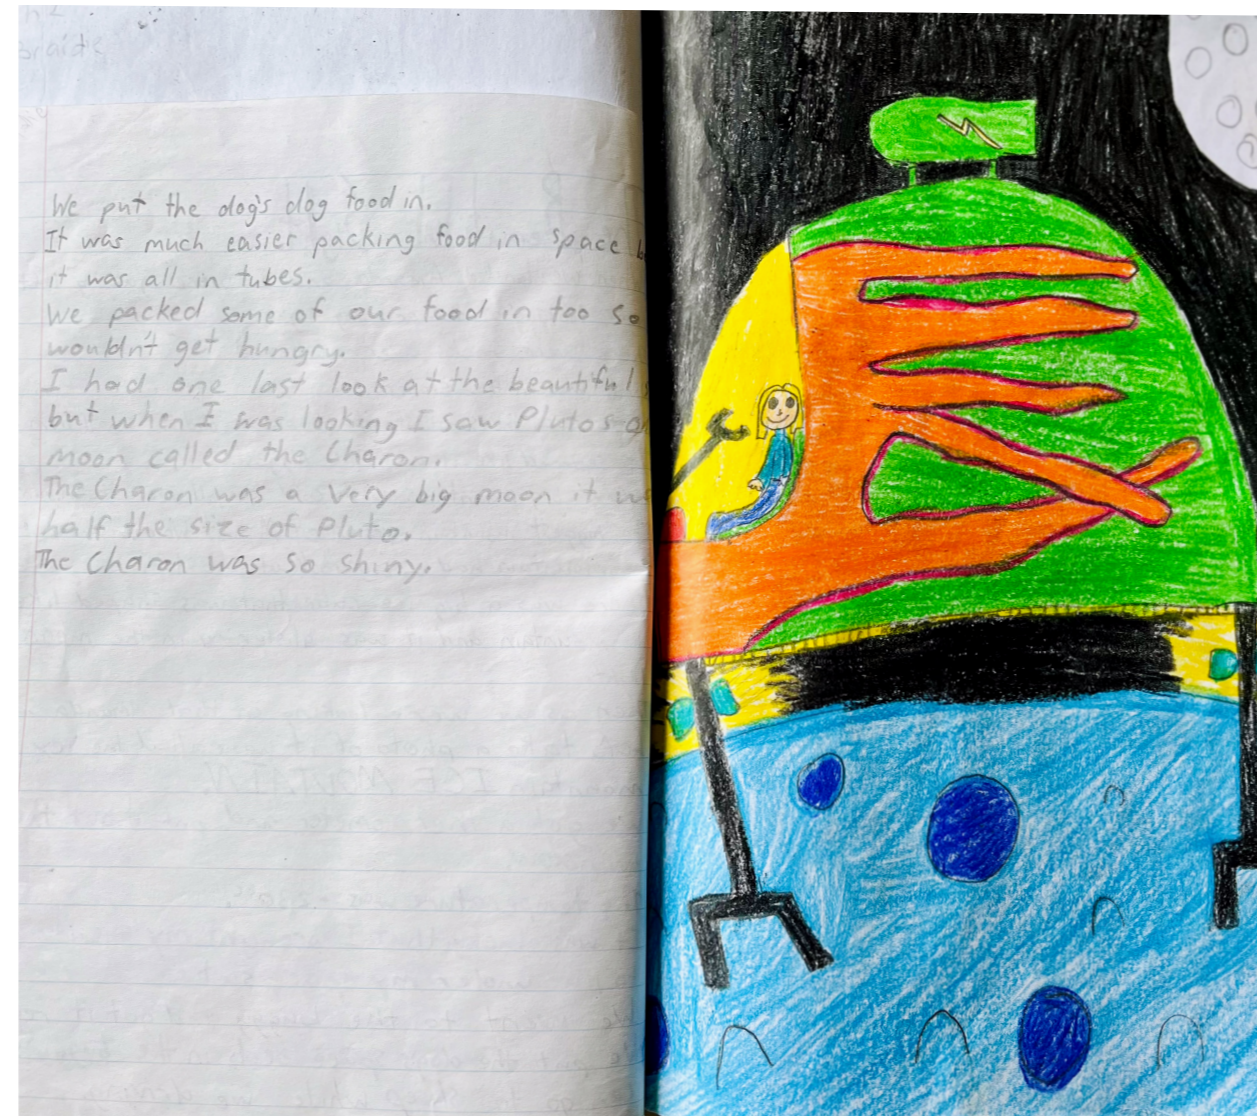 braids
We put the dog's dog food in.
It was much easier packing food in space b
it was all in tubes.
We packed some of our food in too so
wouldn't get hungry.
I had one last look at the beautiful
but when I was looking I saw Pluto's
moon called the Charon.
The Charon was a very big moon it w
half the size of Pluto.
The Charon was so shiny.